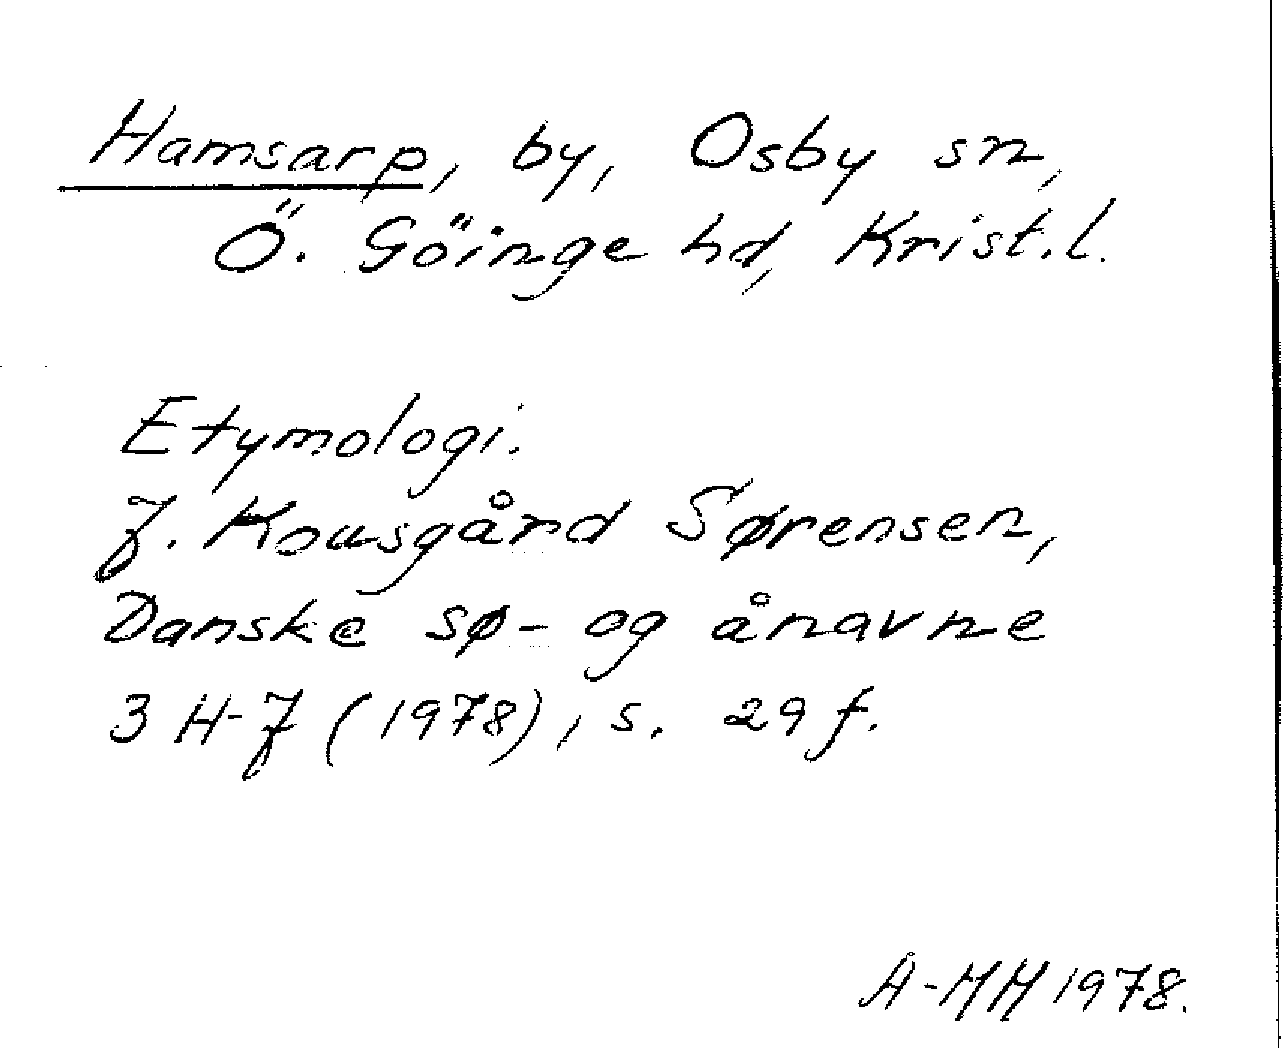 Hamsarp, by, Osby sn,
Ö. Göinge hd, Krist.l.
Etymologi.
J. Kousgård Sørensen,
Danske sø- og ånavne
3 H-J (1978), s. 29 f.
A-MH 1978.